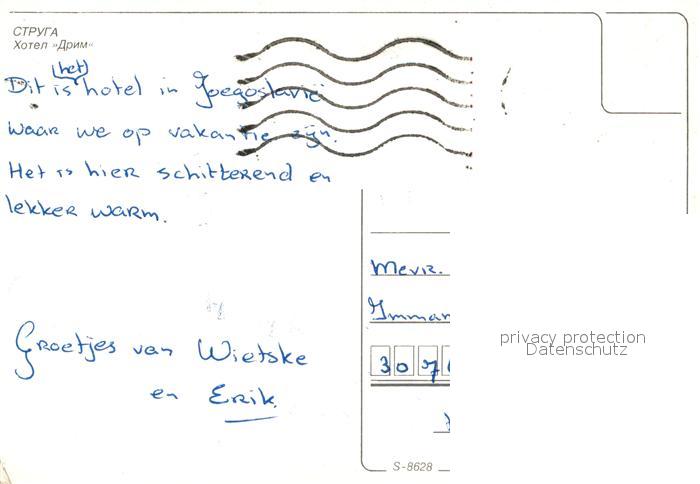 СТРУГА
Хотел »Дрим«
(het)
Dit is hotel in Joegoslavië
waar we op vakantie zijn.
Het is hier schitterend en
lekker warm.
Groetjes van Wietske
en Erik.
Mevr.
Imman
307
privacy protection
Datenschutz
S-8628